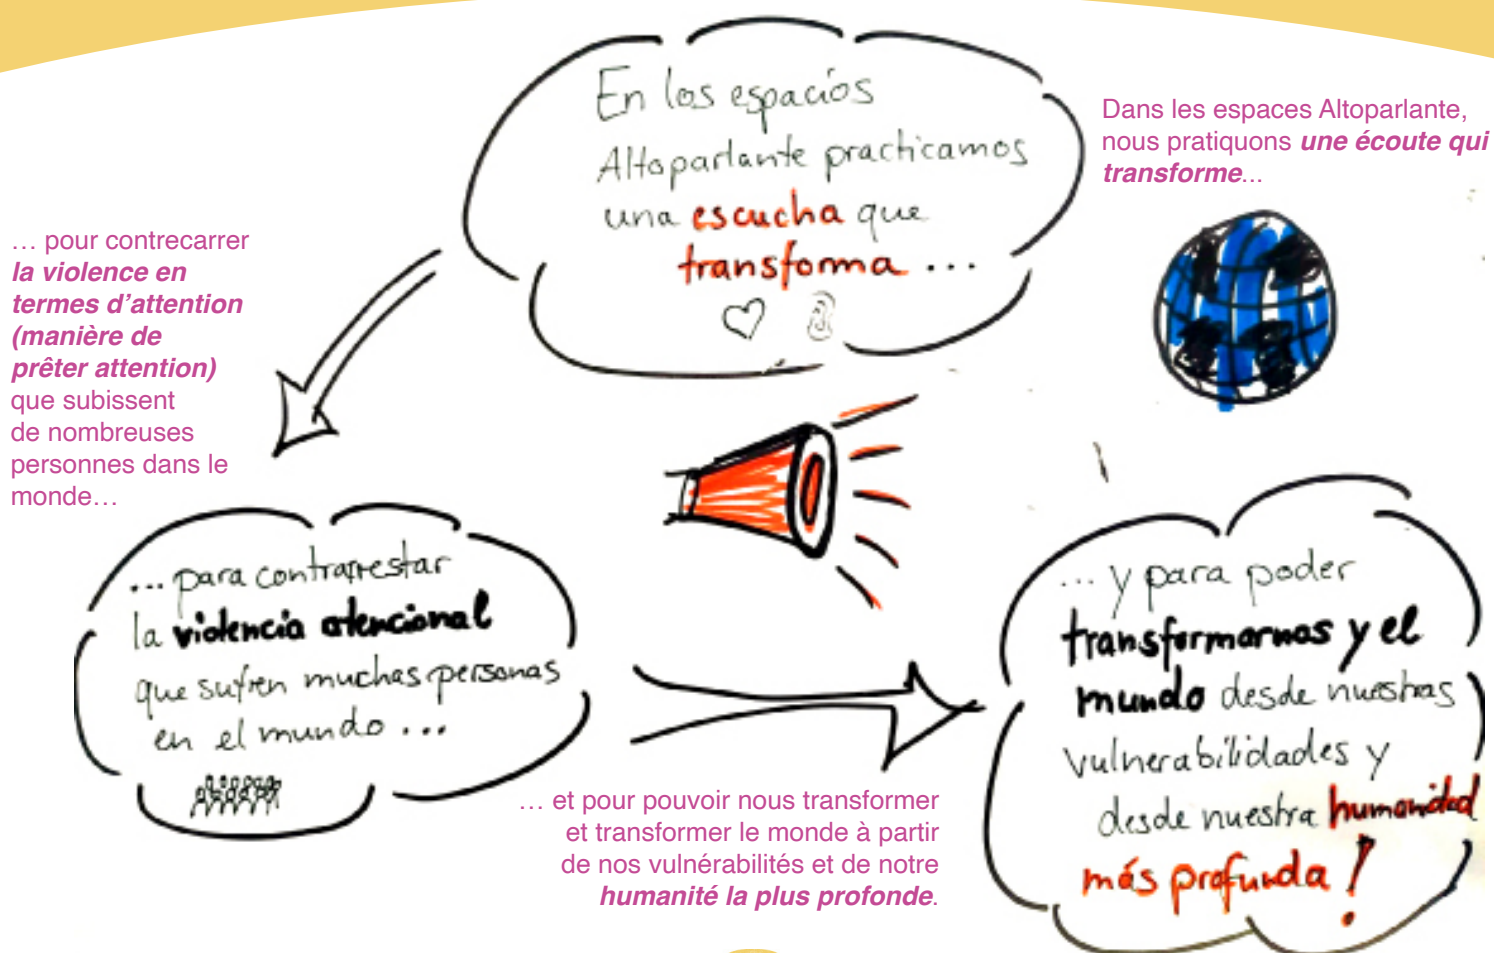 En los espacios
Altoparlante practicamos
una escucha que
transforma ...
Dans les espaces Altoparlante,
nous pratiquons une écoute qui
transforme...
… pour contrecarrer
la violence en
termes d’attention
(manière de
prêter attention)
que subissent
de nombreuses
personnes dans le
monde…
... para contrarrestar
la violencia atencional
que sufren muchas personas
en el mundo ...
… et pour pouvoir nous transformer
et transformer le monde à partir
de nos vulnérabilités et de notre
humanité la plus profonde.
... y para poder
transformarnos y el
mundo desde nuestras
vulnerabilidades y
desde nuestra humanidad
más profunda!